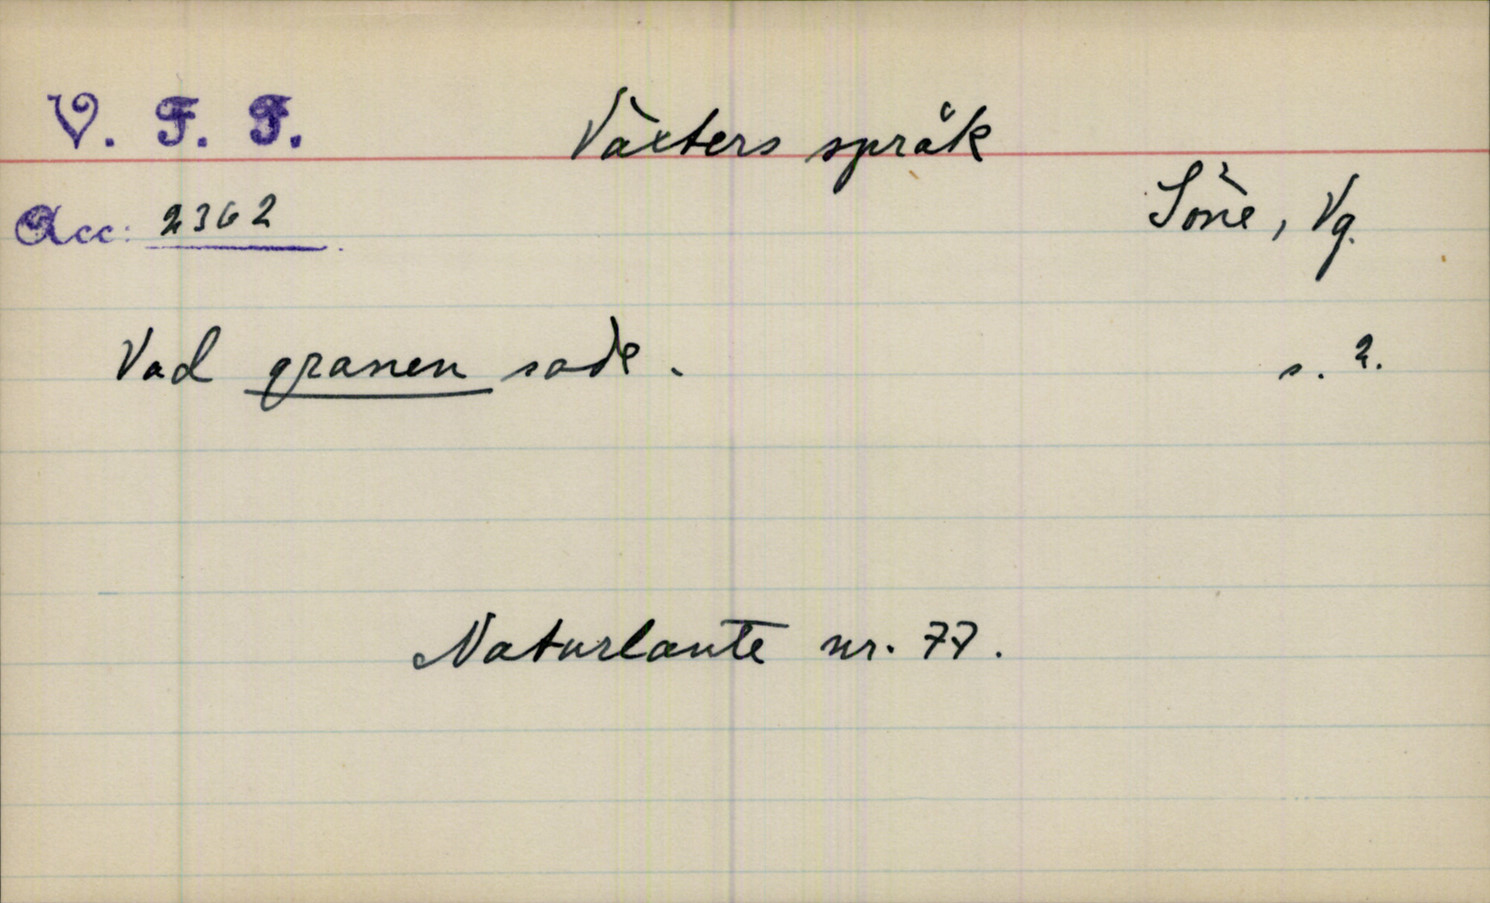 V. F. F.
Växters språk
Acc: 2362
Söne, Vg.
Vad granen sade.
s. 2.
Naturlaute nr. 77.